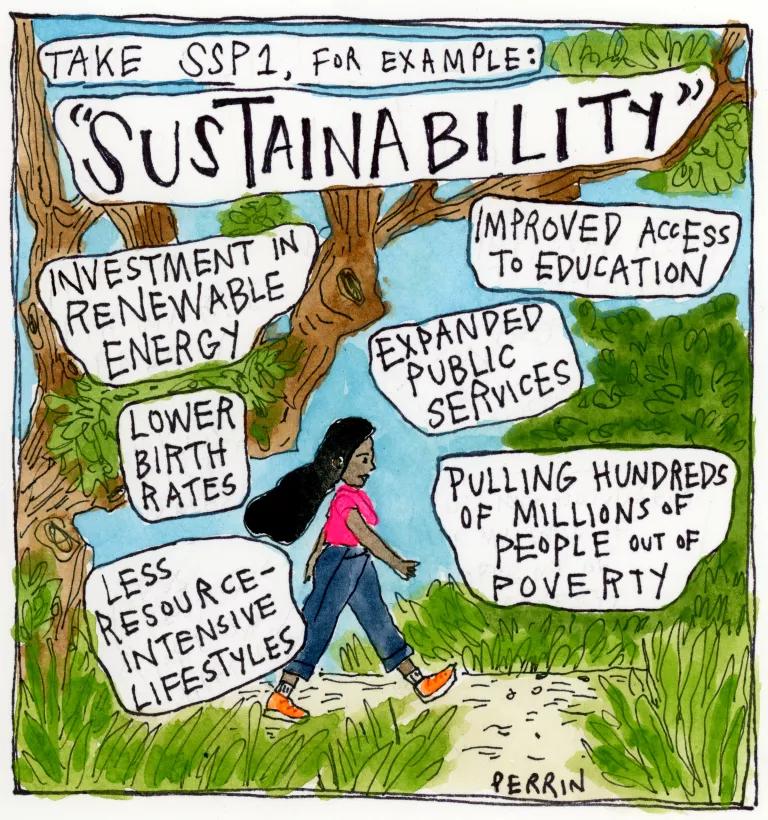 TAKE SSP1, FOR EXAMPLE:
"SUSTAINABILITY"
INVESTMENT IN
RENEWABLE
ENERGY
IMPROVED ACCESS
TO EDUCATION
EXPANDED
PUBLIC
SERVICES
LOWER
BIRTH
RATES
PULLING HUNDREDS
OF MILLIONS OF
PEOPLE OUT OF
POVERTY
LESS
RESOURCE-
INTENSIVE
LIFESTYLES
PERRIN